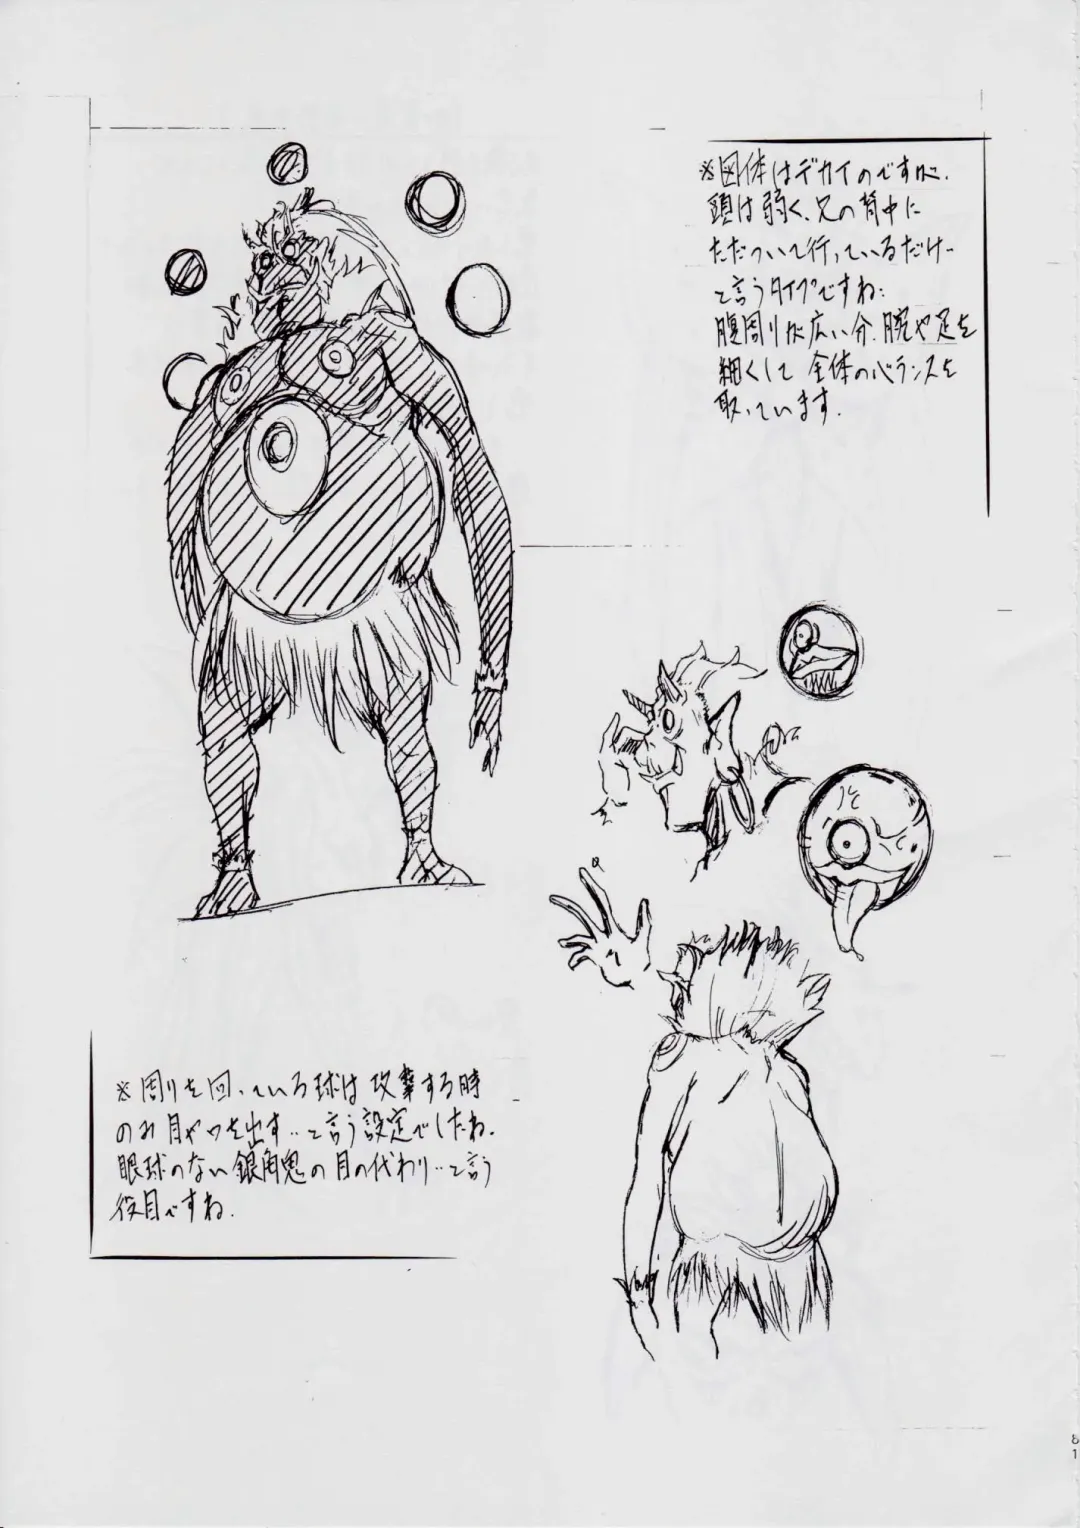 ※図体はデカイのですが、
頭は弱く、兄の背中に
ただついて行っているだけ…
と言うタイプですね:
腹周りが広い分、腕や足を
細くして 全体のバランスを
取っています.
※周りを回っている球は 攻撃する時
のみ 目や口を出す‥と言う設定でしたね.
眼球のない銀角鬼の目の代わり‥と言う
役目ですね.
81